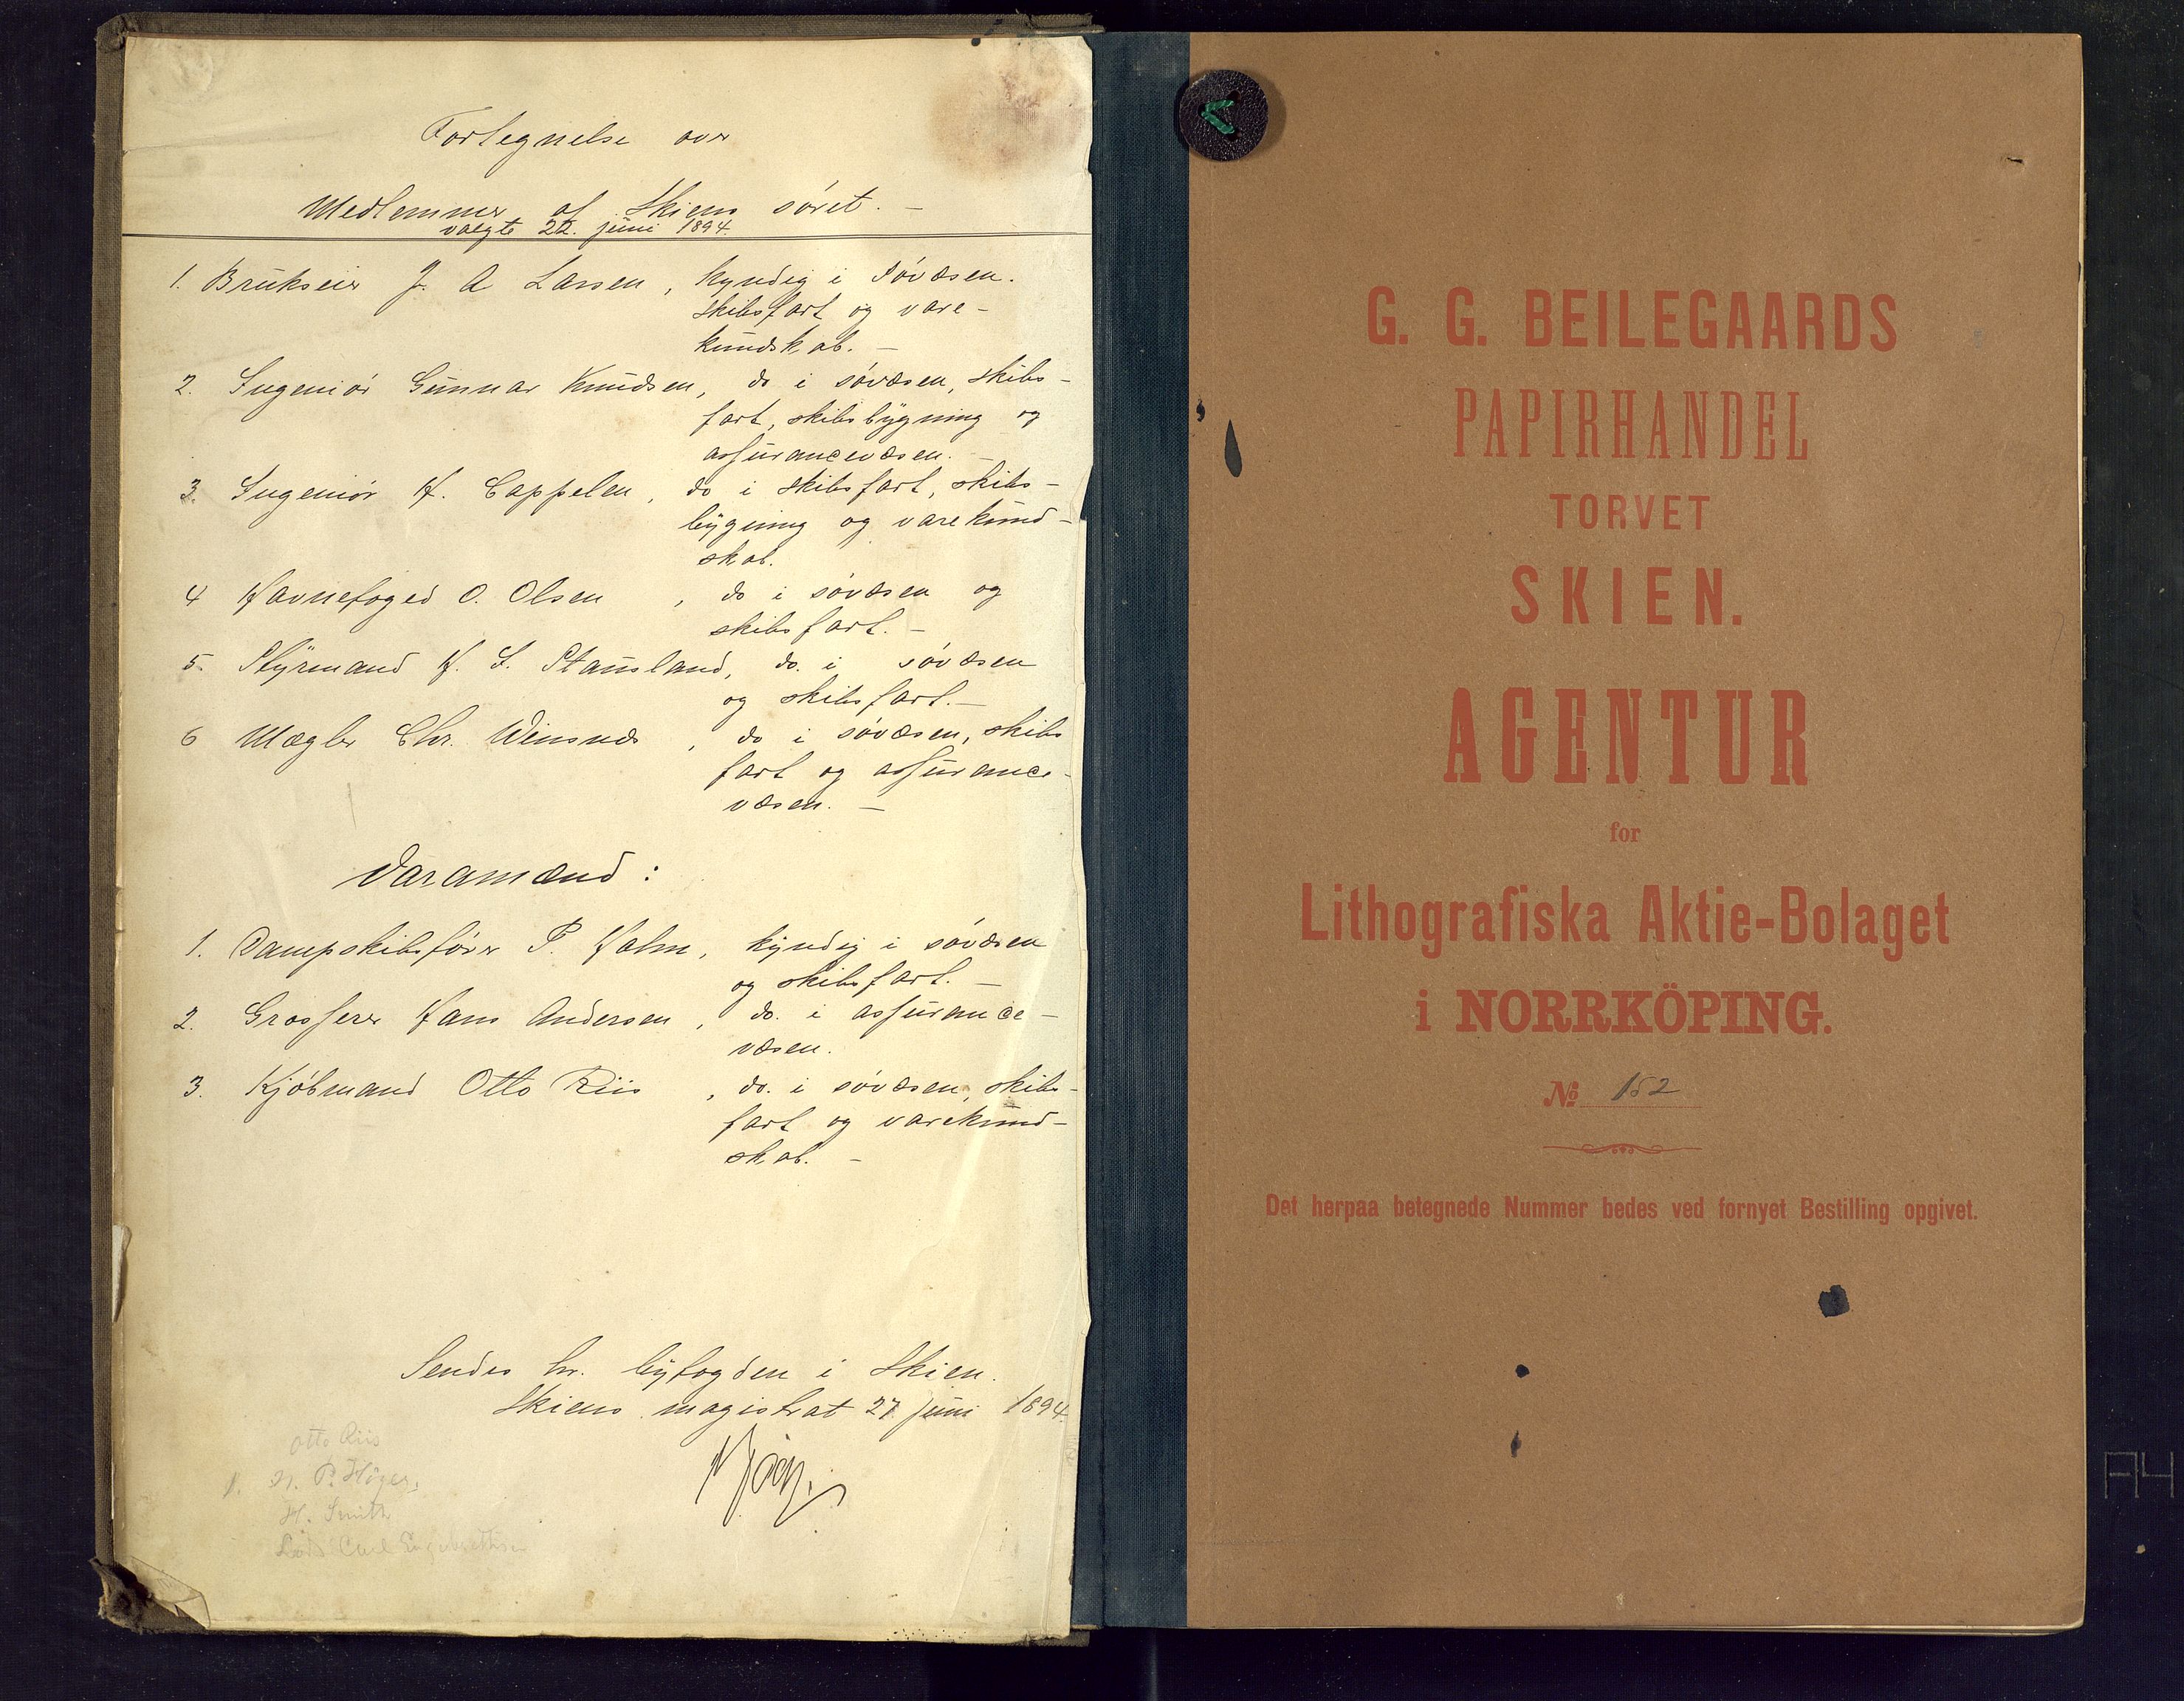 Fortegnelse over
Medlemmer af Skiens søret. –
valgte 22. juni 1894.
1. Brukseier J. A Larsen, kyndig i søvæsen.
skibsfart og vare-
kundskab. –
2. Ingeniør Gunnar Knudsen, do i søvæsen, skibs-
fart, skibsbygning og
assurancevæsen. –
3. Ingeniør H. Cappelen, do i skibsfart, skibs-
bygning og varekund-
skab.
4 Havnefoged O. Olsen, do i søvæsen og
skibsfart. –
5. Styrmand H. I. Stausland, do. i søvæsen
og skibsfart. –
6 Mægler Chr. Winsnes, do i søvæsen, skibs
fart og assurance-
væsen. –
Varamænd:
1. Dampskibsfører P. Holm, kyndig i søvæsen
og skibsfart. –
2. Grosserer Hans Andersen, do. i assurance-
væsen.
3. Kjøbmand Otto Riis, do. i søvæsen, skibs-
fart og varekund-
skab. –
Sendes hr. byfogden i Skien.
Skiens magistrat 27 juni 1894
Otto Riis
1. N. P. Høyer,
H. Smith
Lods Carl Engebrethsen
G. G. BEILEGAARDS
PAPIRHANDEL
TORVET
SKIEN.
AGENTUR
for
Lithografiska Aktie-Bolaget
i NORRKÖPING.
No 152
Det herpaa betegnede Nummer bedes ved fornyet Bestilling opgivet.
A4